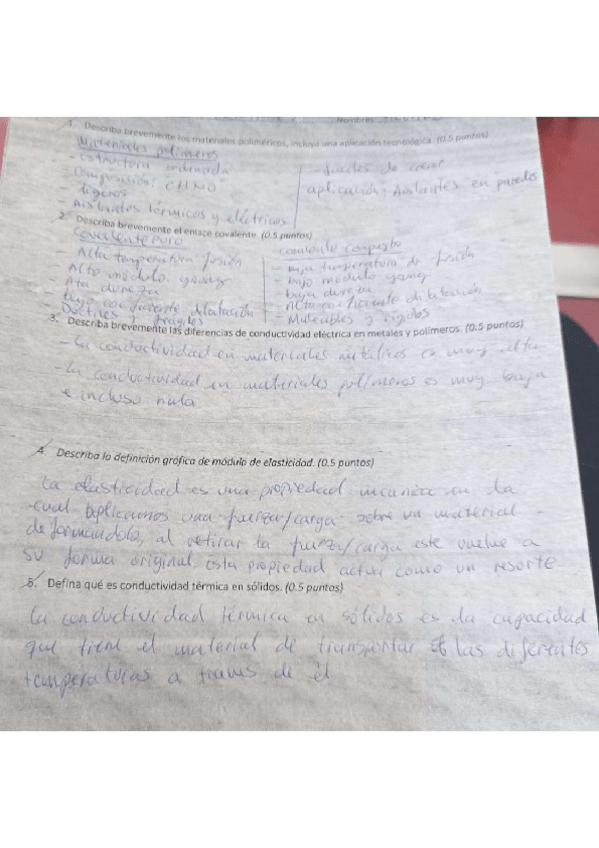 Nombres
1. Describa brevemente los materiales poliméricos, incluya una aplicación tecnológica. (0.5 puntos)
Materiales polímeros
- estructura ordenada
- Composición: CHNO
- ligeros
- Aislantes térmicos y eléctricos
- fáciles de crear
aplicación: Aislantes en paredes
2. Describa brevemente el enlace covalente. (0.5 puntos)
Covalente puro
Alta temperatura fusión
Alto módulo young
Ata dureza
bajo coeficiente dilatación
Ductiles y frágiles
covalente compuesto
- baja temperatura de fusión
- bajo módulo young
- baja dureza
- Alto coeficiente dilatación
- Maleables y rígidos
3. Describa brevemente las diferencias de conductividad eléctrica en metales y polímeros. (0.5 puntos)
- La conductividad en materiales metálicos es muy alta
- La conductividad en materiales polímeros es muy baja
e incluso nula
4. Describa la definición gráfica de módulo de elasticidad. (0.5 puntos)
La elasticidad es una propiedad mecánica en la
cual aplicamos una fuerza/carga sobre un material
deformandolo, al retirar la fuerza/carga este vuelve a
su forma original, esta propiedad actua como un resorte
5. Defina qué es conductividad térmica en sólidos. (0.5 puntos)
La conductividad térmica en sólidos es la capacidad
que tiene el material de transportar las diferentes
temperaturas a traves de él